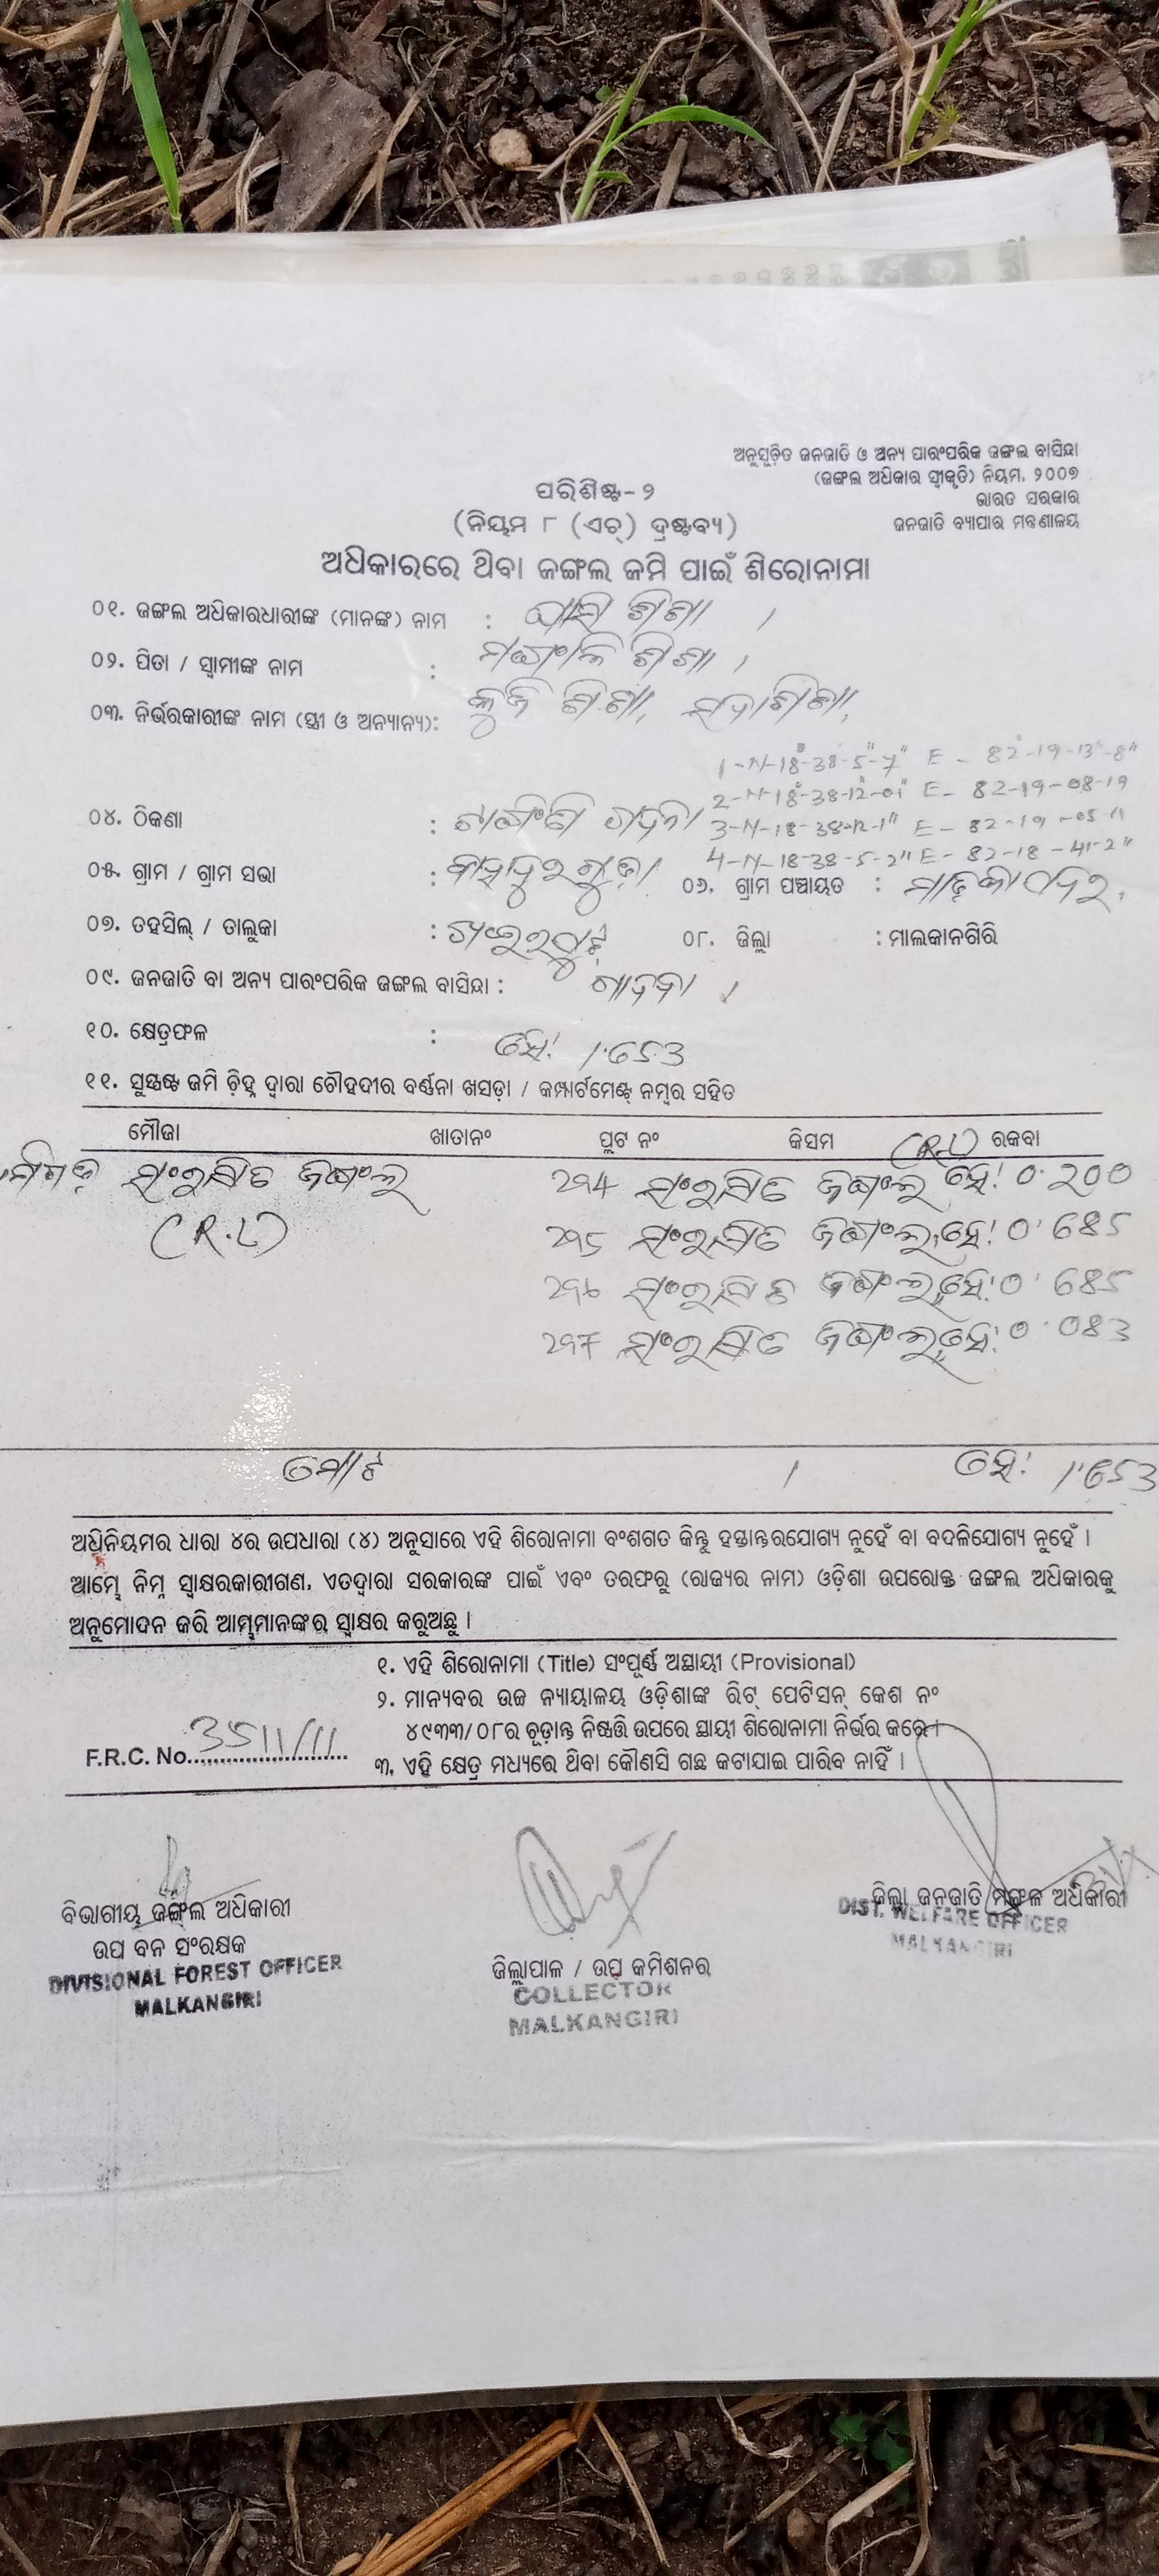 ଅନୁସୂଚିତ ଜନଜାତି ଓ ଅନ୍ୟ ପାରଂପରିକ ଜଙ୍ଗଲ ବାସିନ୍ଦା
(ଜଙ୍ଗଲ ଅଧିକାର ସ୍ୱୀକୃତି) ନିୟମ, ୨୦୦୭
ଭାରତ ସରକାର
ଜନଜାତି ବ୍ୟାପାର ମନ୍ତ୍ରଣାଳୟ
ପରିଶିଷ୍ଟ- ୨
(ନିୟମ ୮ (ଏଚ୍) ଦ୍ରଷ୍ଟବ୍ୟ)
ଅଧିକାରରେ ଥିବା ଜଙ୍ଗଲ ଜମି ପାଇଁ ଶିରୋନାମା
୦୧. ଜଙ୍ଗଲ ଅଧିକାରଧାରୀଙ୍କ (ମାନଙ୍କ) ନାମ :
୦୨. ପିତା / ସ୍ୱାମୀଙ୍କ ନାମ :
୦୩. ନିର୍ଭରକାରୀଙ୍କ ନାମ (ସ୍ତ୍ରୀ ଓ ଅନ୍ୟାନ୍ୟ):
1-N-18°-38-5"-7" E - 82°-19-13"-8"
2-N-18°-38-12-01" E- 82-19-08-19
3-N-18-38-12-1" E- 82-19-05-11
4-N-18-38-5-2" E- 82-18-41-2"
୦୪. ଠିକଣା :
୦୫. ଗ୍ରାମ / ଗ୍ରାମ ସଭା : ବାହାଦୁରଗୁଡ଼ା ୦୬. ଗ୍ରାମ ପଞ୍ଚାୟତ :
୦୭. ତହସିଲ୍ / ତାଲୁକା : ଖଇରପୁଟ ୦୮. ଜିଲ୍ଲା : ମାଲକାନଗିରି
୦୯. ଜନଜାତି ବା ଅନ୍ୟ ପାରଂପରିକ ଜଙ୍ଗଲ ବାସିନ୍ଦା : ଗାଦବା ।
୧୦. କ୍ଷେତ୍ରଫଳ : ହେ: 1.653
୧୧. ସୁସ୍ପଷ୍ଟ ଜମି ଚିହ୍ନ ଦ୍ୱାରା ଚୌହଦୀର ବର୍ଣ୍ଣନା ଖସଡ଼ା / କମ୍ପାର୍ଟମେଣ୍ଟ୍ ନମ୍ବର ସହିତ
ମୌଜା ଖାତାନଂ ପ୍ଲଟ ନଂ କିସମ (R.L) ରକବା
ସଂରକ୍ଷିତ ଜଙ୍ଗଲ ସଂରକ୍ଷିତ ଜଙ୍ଗଲ ହେ: 0.200
(R.L) ସଂରକ୍ଷିତ ଜଙ୍ଗଲ, ହେ: 0.685
ସଂରକ୍ଷିତ ଜଙ୍ଗଲ, ହେ: 0.685
ସଂରକ୍ଷିତ ଜଙ୍ଗଲ, ହେ: 0.083
ମୋଟ । ହେ: 1.653
ଅଧିନିୟମର ଧାରା ୪ର ଉପଧାରା (୪) ଅନୁସାରେ ଏହି ଶିରୋନାମା ବଂଶଗତ କିନ୍ତୁ ହସ୍ତାନ୍ତରଯୋଗ୍ୟ ନୁହେଁ ବା ବଦଳିଯୋଗ୍ୟ ନୁହେଁ ।
ଆମ୍ଭେ ନିମ୍ନ ସ୍ୱାକ୍ଷରକାରୀଗଣ, ଏତଦ୍ୱାରା ସରକାରଙ୍କ ପାଇଁ ଏବଂ ତରଫରୁ (ରାଜ୍ୟର ନାମ) ଓଡ଼ିଶା ଉପରୋକ୍ତ ଜଙ୍ଗଲ ଅଧିକାରକୁ
ଅନୁମୋଦନ କରି ଆମ୍ଭମାନଙ୍କର ସ୍ୱାକ୍ଷର କରୁଅଛୁ ।
୧. ଏହି ଶିରୋନାମା (Title) ସଂପୂର୍ଣ୍ଣ ଅସ୍ଥାୟୀ (Provisional)
୨. ମାନ୍ୟବର ଉଚ୍ଚ ନ୍ୟାୟାଳୟ ଓଡ଼ିଶାଙ୍କ ରିଟ୍ ପେଟିସନ୍ କେଶ ନଂ
୪୯୩୩/୦୮ର ଚୂଡ଼ାନ୍ତ ନିଷ୍ପତ୍ତି ଉପରେ ସ୍ଥାୟୀ ଶିରୋନାମା ନିର୍ଭର କରେ ।
F.R.C. No. 3511/11
୩. ଏହି କ୍ଷେତ୍ର ମଧ୍ୟରେ ଥିବା କୌଣସି ଗଛ କଟାଯାଇ ପାରିବ ନାହିଁ ।
ବିଭାଗୀୟ ଜଙ୍ଗଲ ଅଧିକାରୀ
ଉପ ବନ ସଂରକ୍ଷକ
DIVISIONAL FOREST OFFICER
MALKANGIRI
ଜିଲ୍ଲାପାଳ / ଉପ କମିଶନର
COLLECTOR
MALKANGIRI
ଜିଲ୍ଲା ଜନଜାତି ମଙ୍ଗଳ ଅଧିକାରୀ
DIST. WELFARE OFFICER
MALKANGIRI